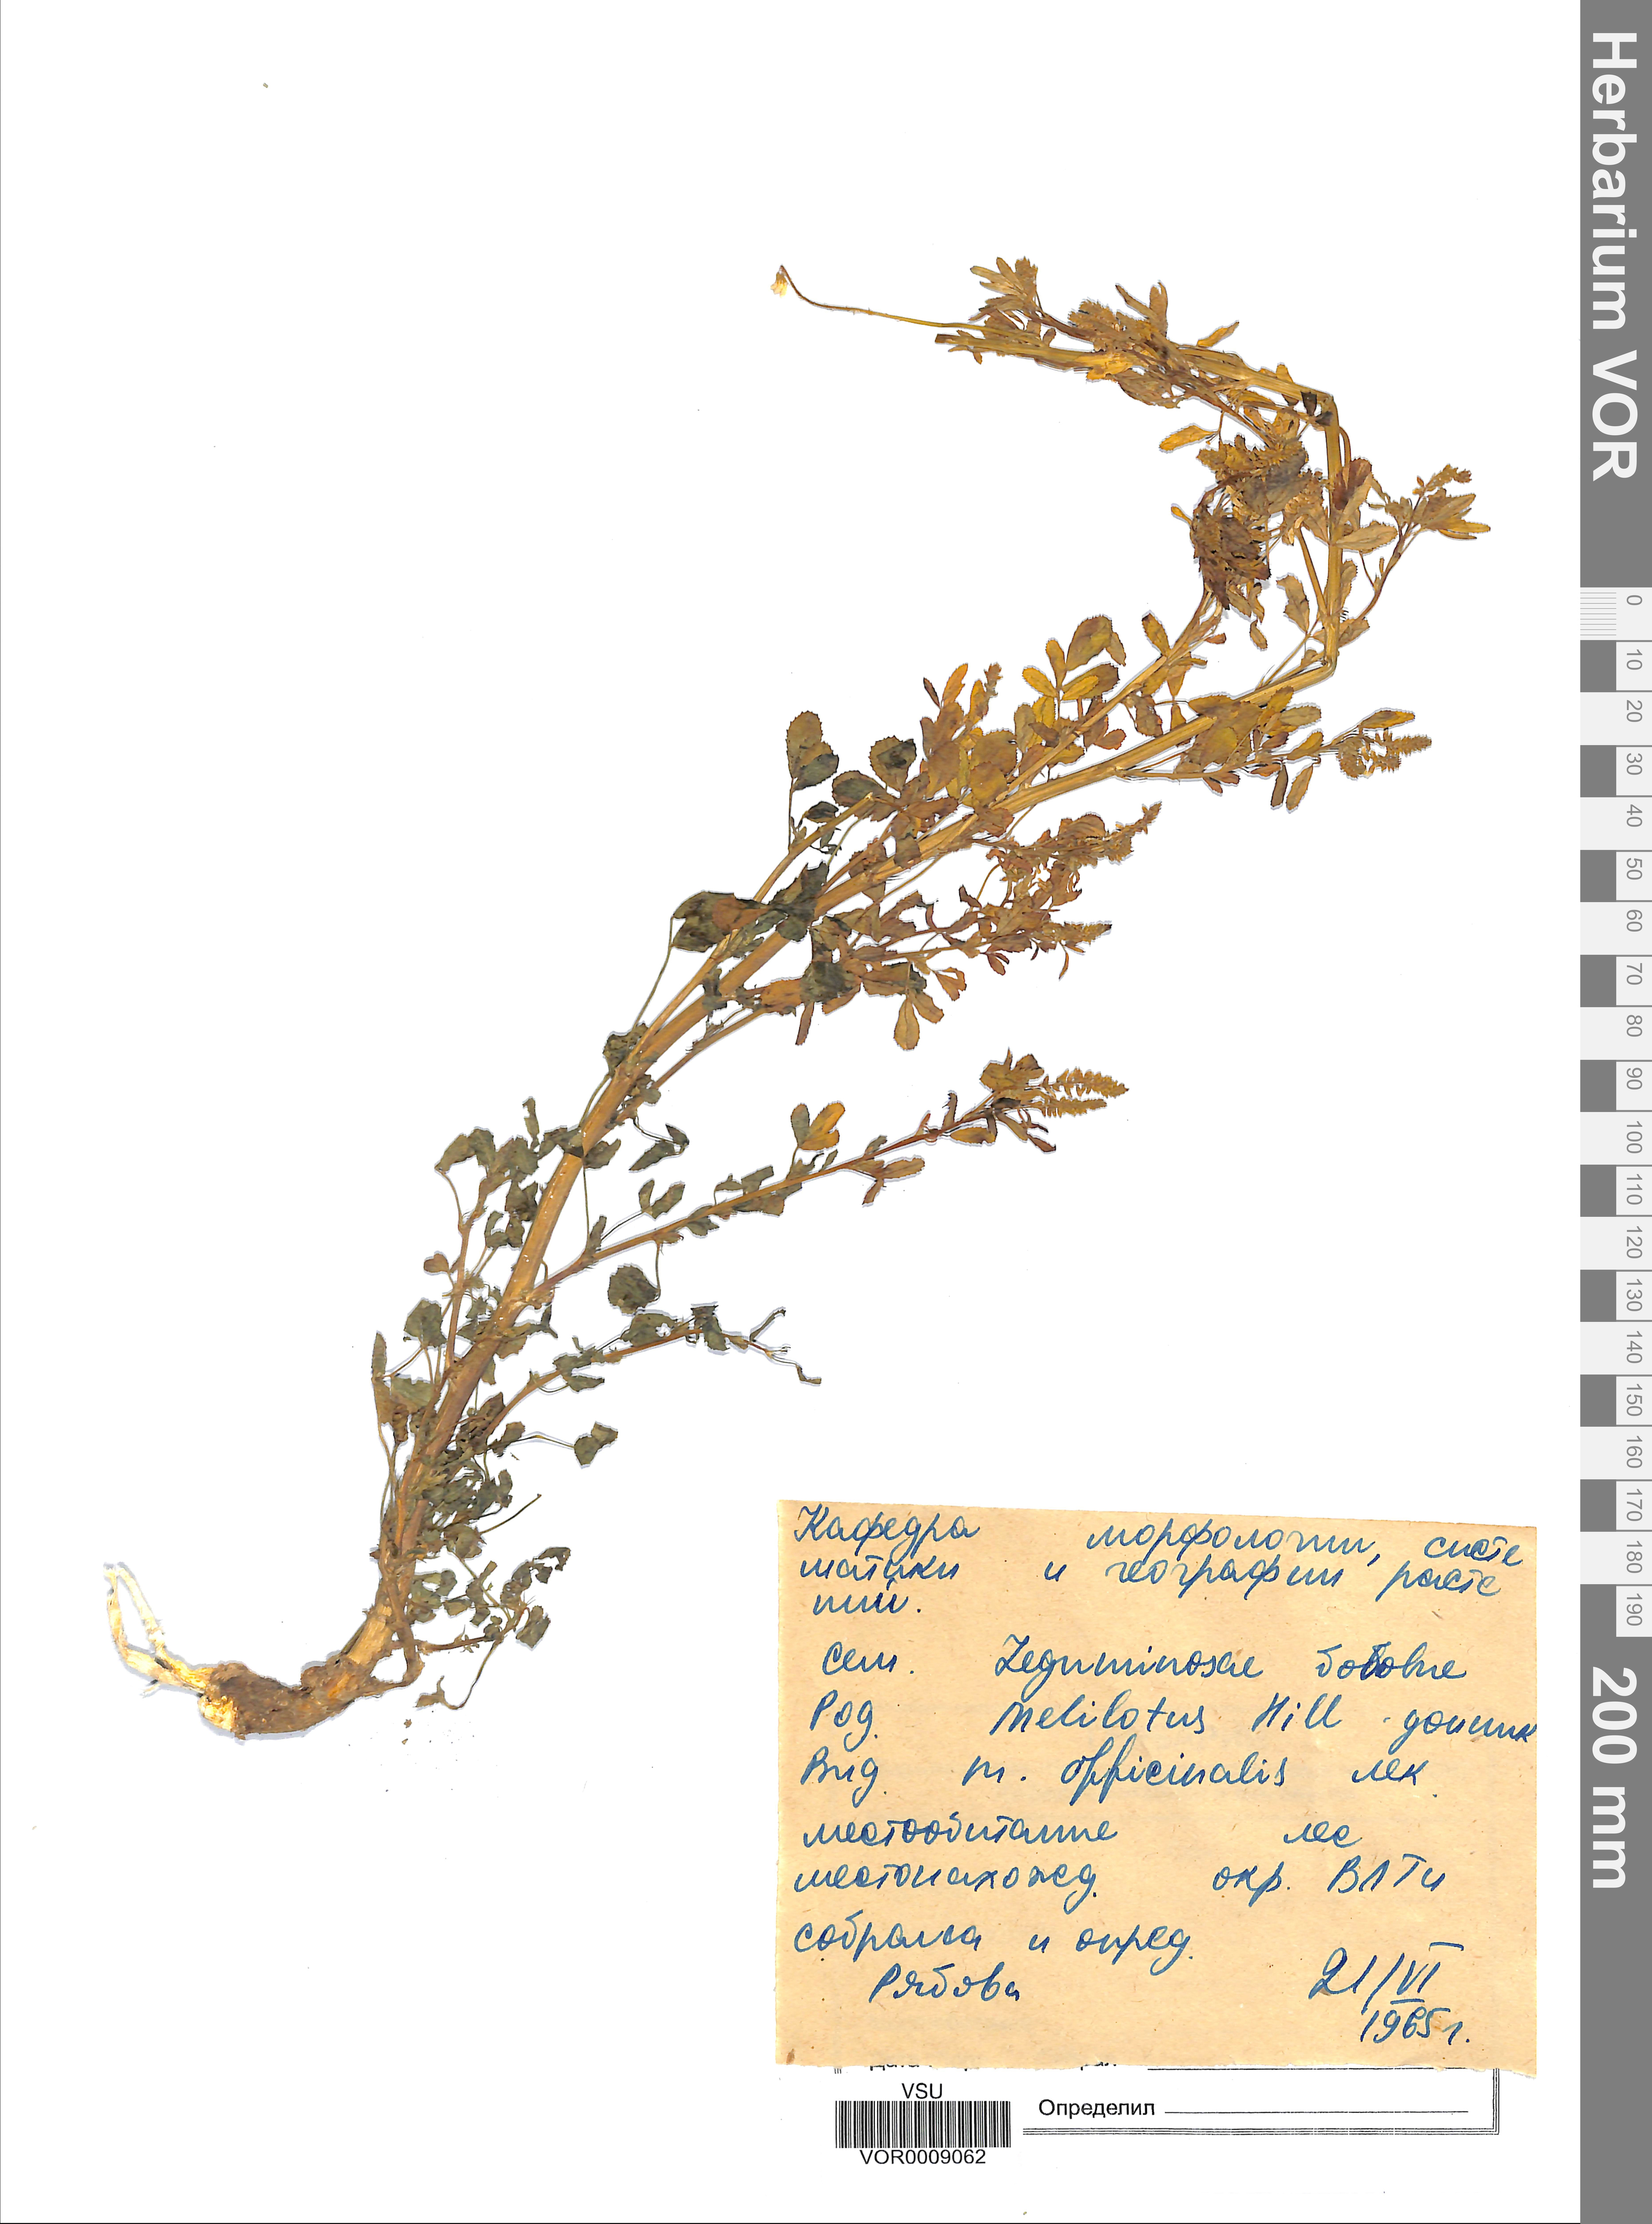 Herbarium VOR
0 10 20 30 40 50 60 70 80 90 100 110 120 130 140 150 160 170 180 190
200 mm
Кафедра морфологии, систе
матики и географии расте
ний.
Сем. Leguminosae бобовые
Род. Melilotus Hill донник
Вид m. officinalis лек
местообитание лес
местонахожд. окр. ВЛТи
собрала и опред.
Рябова 21/VI
1965 г.
VSU
Определил
VOR0009062